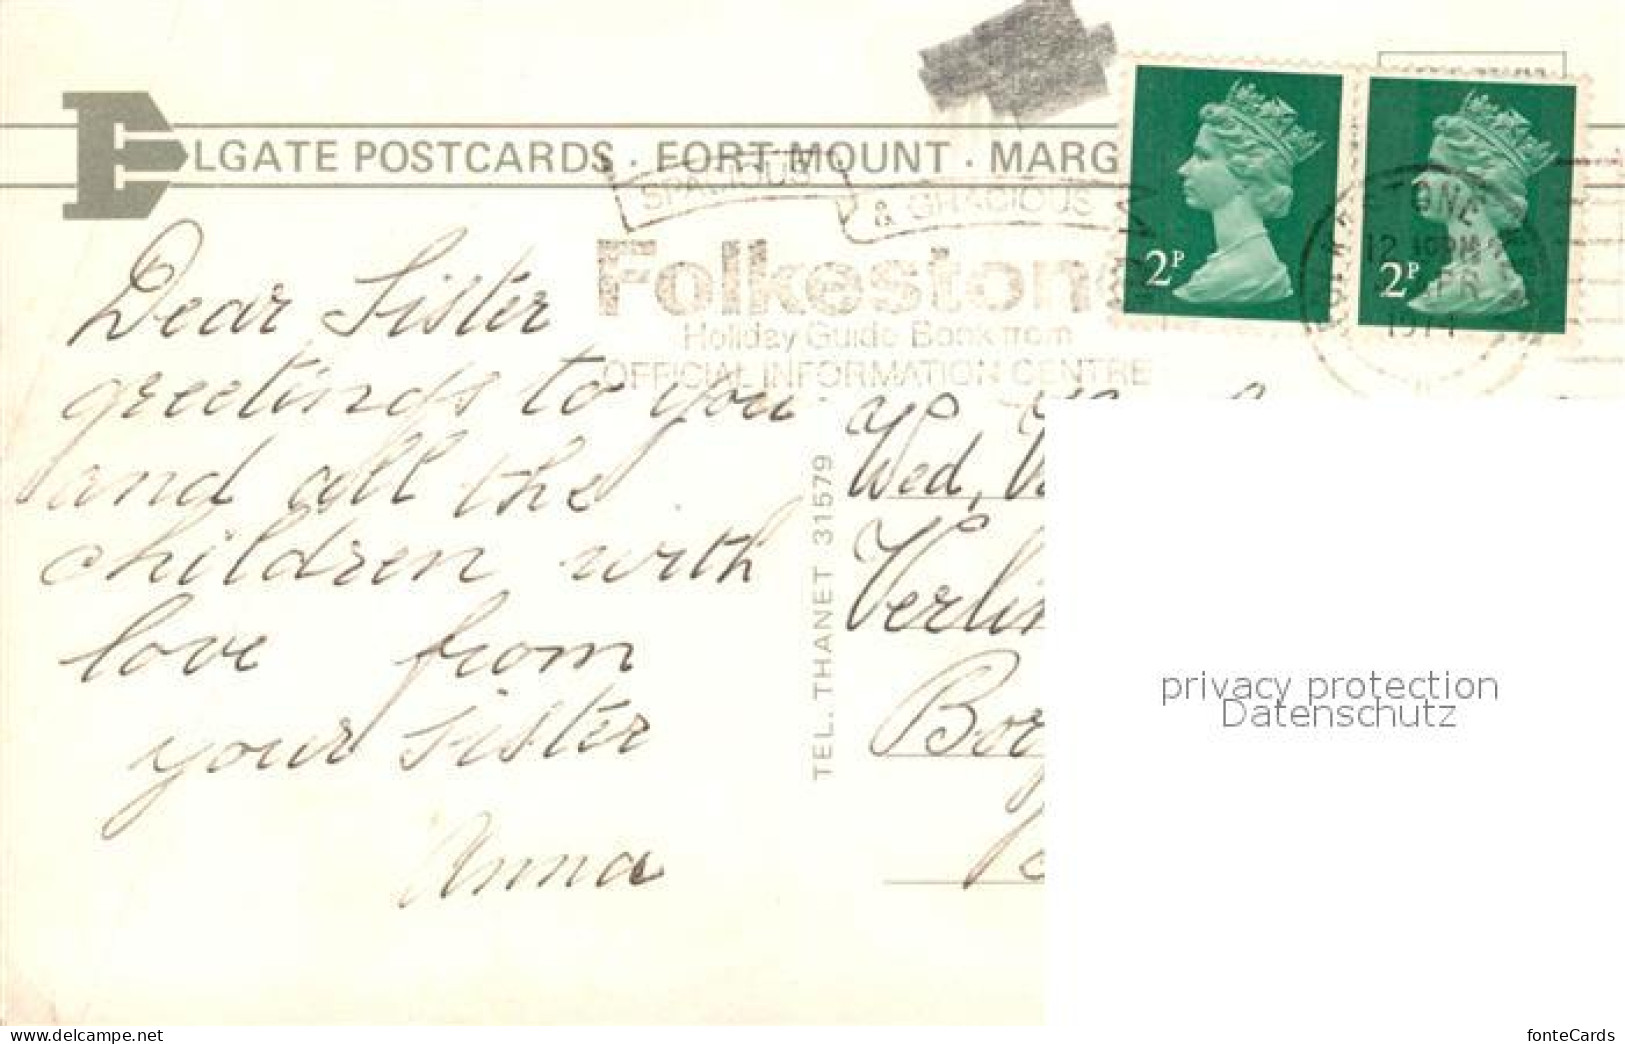 ELGATE POSTCARDS · FORT MOUNT · MARG
SPACIOUS
& GRACIOUS
Folkestone
Holiday Guide Book from
OFFICIAL INFORMATION CENTRE
2P
2P
TONE
12
1974
Dear Sister
greetings to you
and all the
children with
love from
your sister
Anna
TEL. THANET 31579
Wed, V
Verlin
Bor
privacy protection
Datenschutz
www.delcampe.net
fonteCards